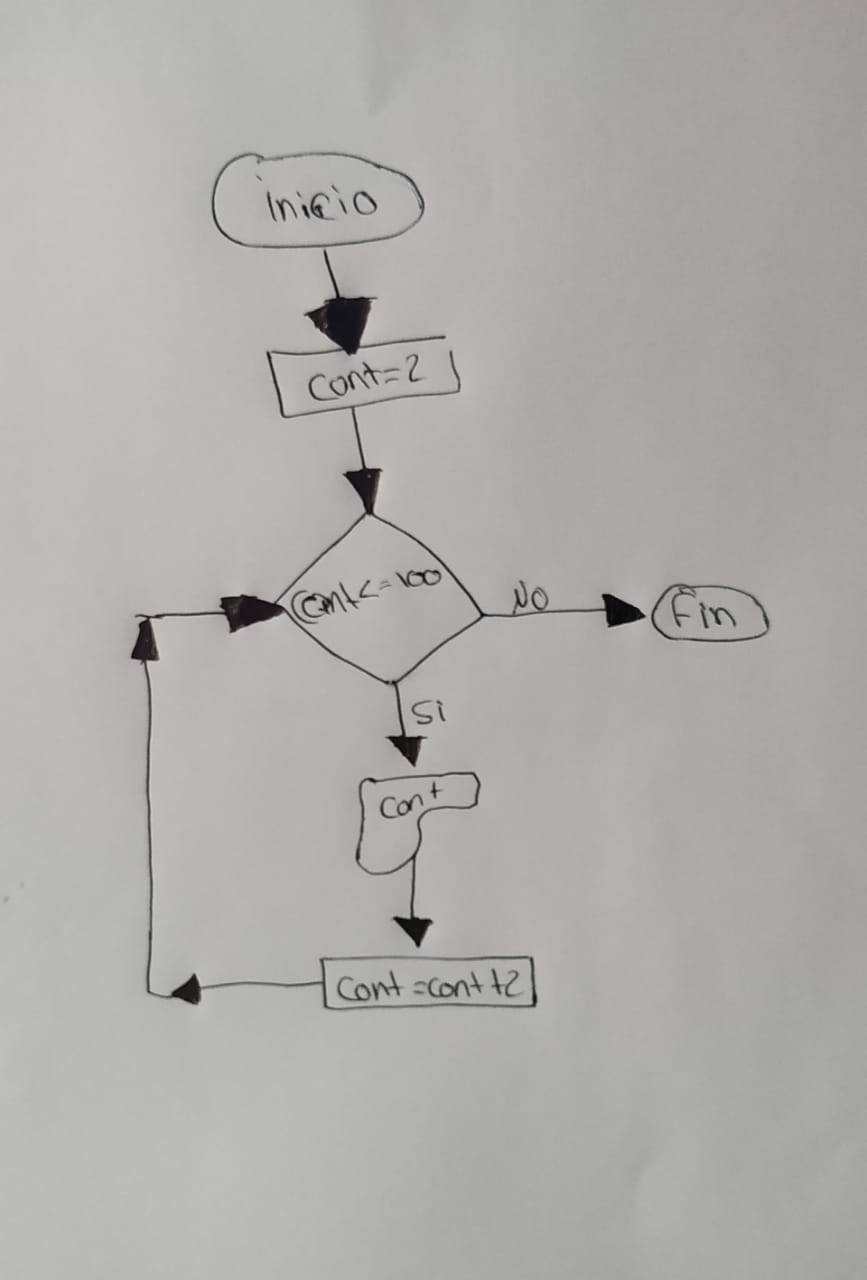 inicio
cont=2
cont<=100
NO
Fin
Si
cont
cont=cont+2